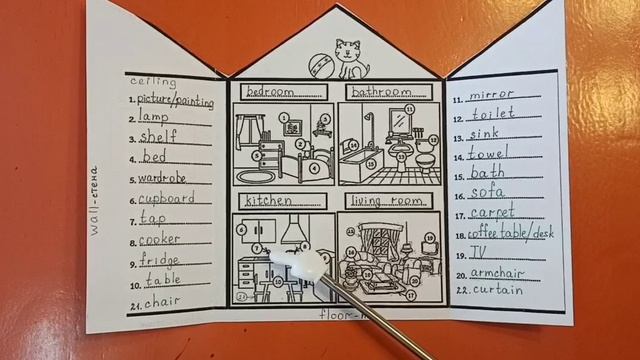 ceiling
1. picture/painting
2. lamp
3. shelf
4. bed
5. wardrobe
6. cupboard
7. tap
8. cooker
9. fridge
10. table
21. chair
wall-стена
bedroom
bathroom
kitchen
living room
floor-
11. mirror
12. toilet
13. sink
14. towel
15. bath
16. sofa
17. carpet
18. coffee table/desk
19. TV
20. armchair
22. curtain